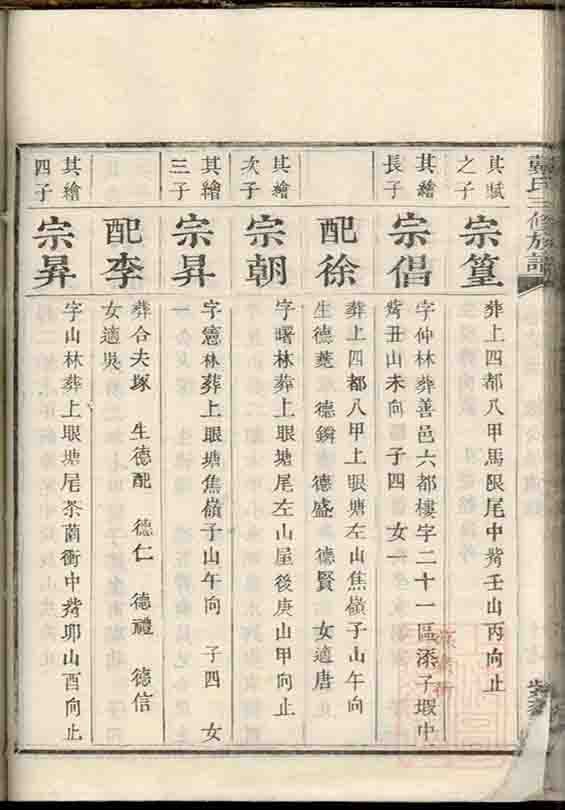 氏三修族譜
其賦之子
宗篁
葬上四都八甲馬限尾中背壬山丙向止
其繪長子
宗倡
字仲林葬善邑六都樓字二十一區添子塅中
背丑山未向 子四 女一
配徐
葬上四都八甲上眼塘左山焦嶺子山午向
生德㷻 德鏻 德盛 德賢 女適唐
其繪次子
宗朝
字曙林葬上眼塘尾左山屋後庚山甲向止
其繪三子
宗昇
字憲林葬上眼塘焦嶺子山午向 子四 女
配李
葬合夫塚 生德配 德仁 德禮 德信
女適吳
其繪四子
宗昇
字山林葬上眼塘尾茶蘭衝中背夘山酉向止